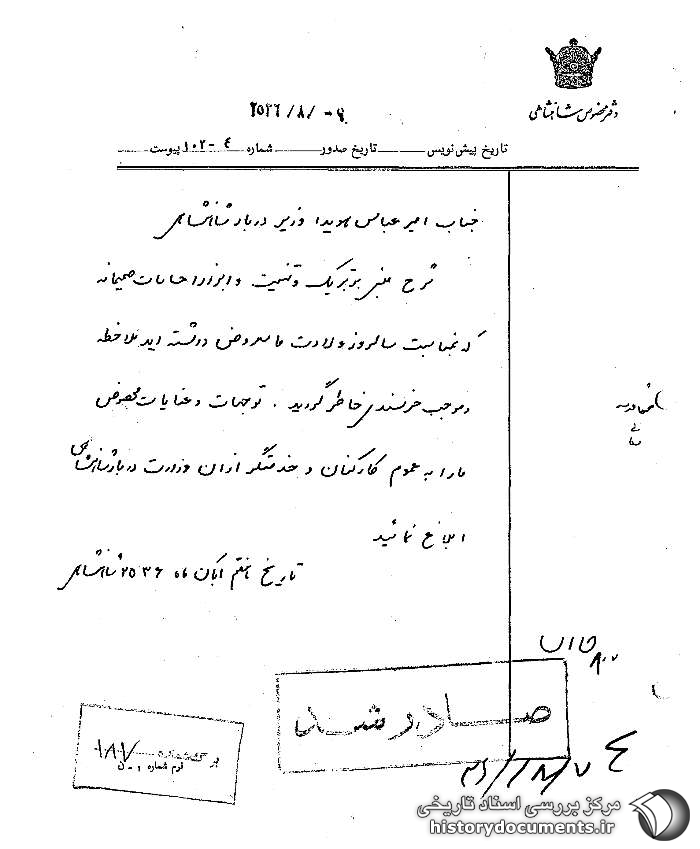 دفتر مخصوص شاهنشاهی
۲۵۳۶/۸/۰۹
تاریخ پیش‌نویس ــــ تاریخ صدور ــــ شماره ۴-۱۰۲ پیوست ــــ
جناب امیر عباس هویدا وزیر دربار شاهنشاهی
شرح مبنی بر تبریک و تهنیت و ابراز احساسات صمیمانه
که بمناسبت سالروز ولادت ما معروض داشته اید ملاحظه
و موجب خرسندی خاطر گردید . توجهات و عنایات مخصوص
ما را به عموم کارکنان و خدمتگزاران وزارت دربار شاهنشاهی
ابلاغ نمائید
تاریخ هفتم آبان ماه ۲۵۳۶ شاهنشاهی
صادر شد
۳۶/۸/۷
برگشماره ۱۸۷
فرم شماره
مرکز بررسی اسناد تاریخی
historydocuments.ir